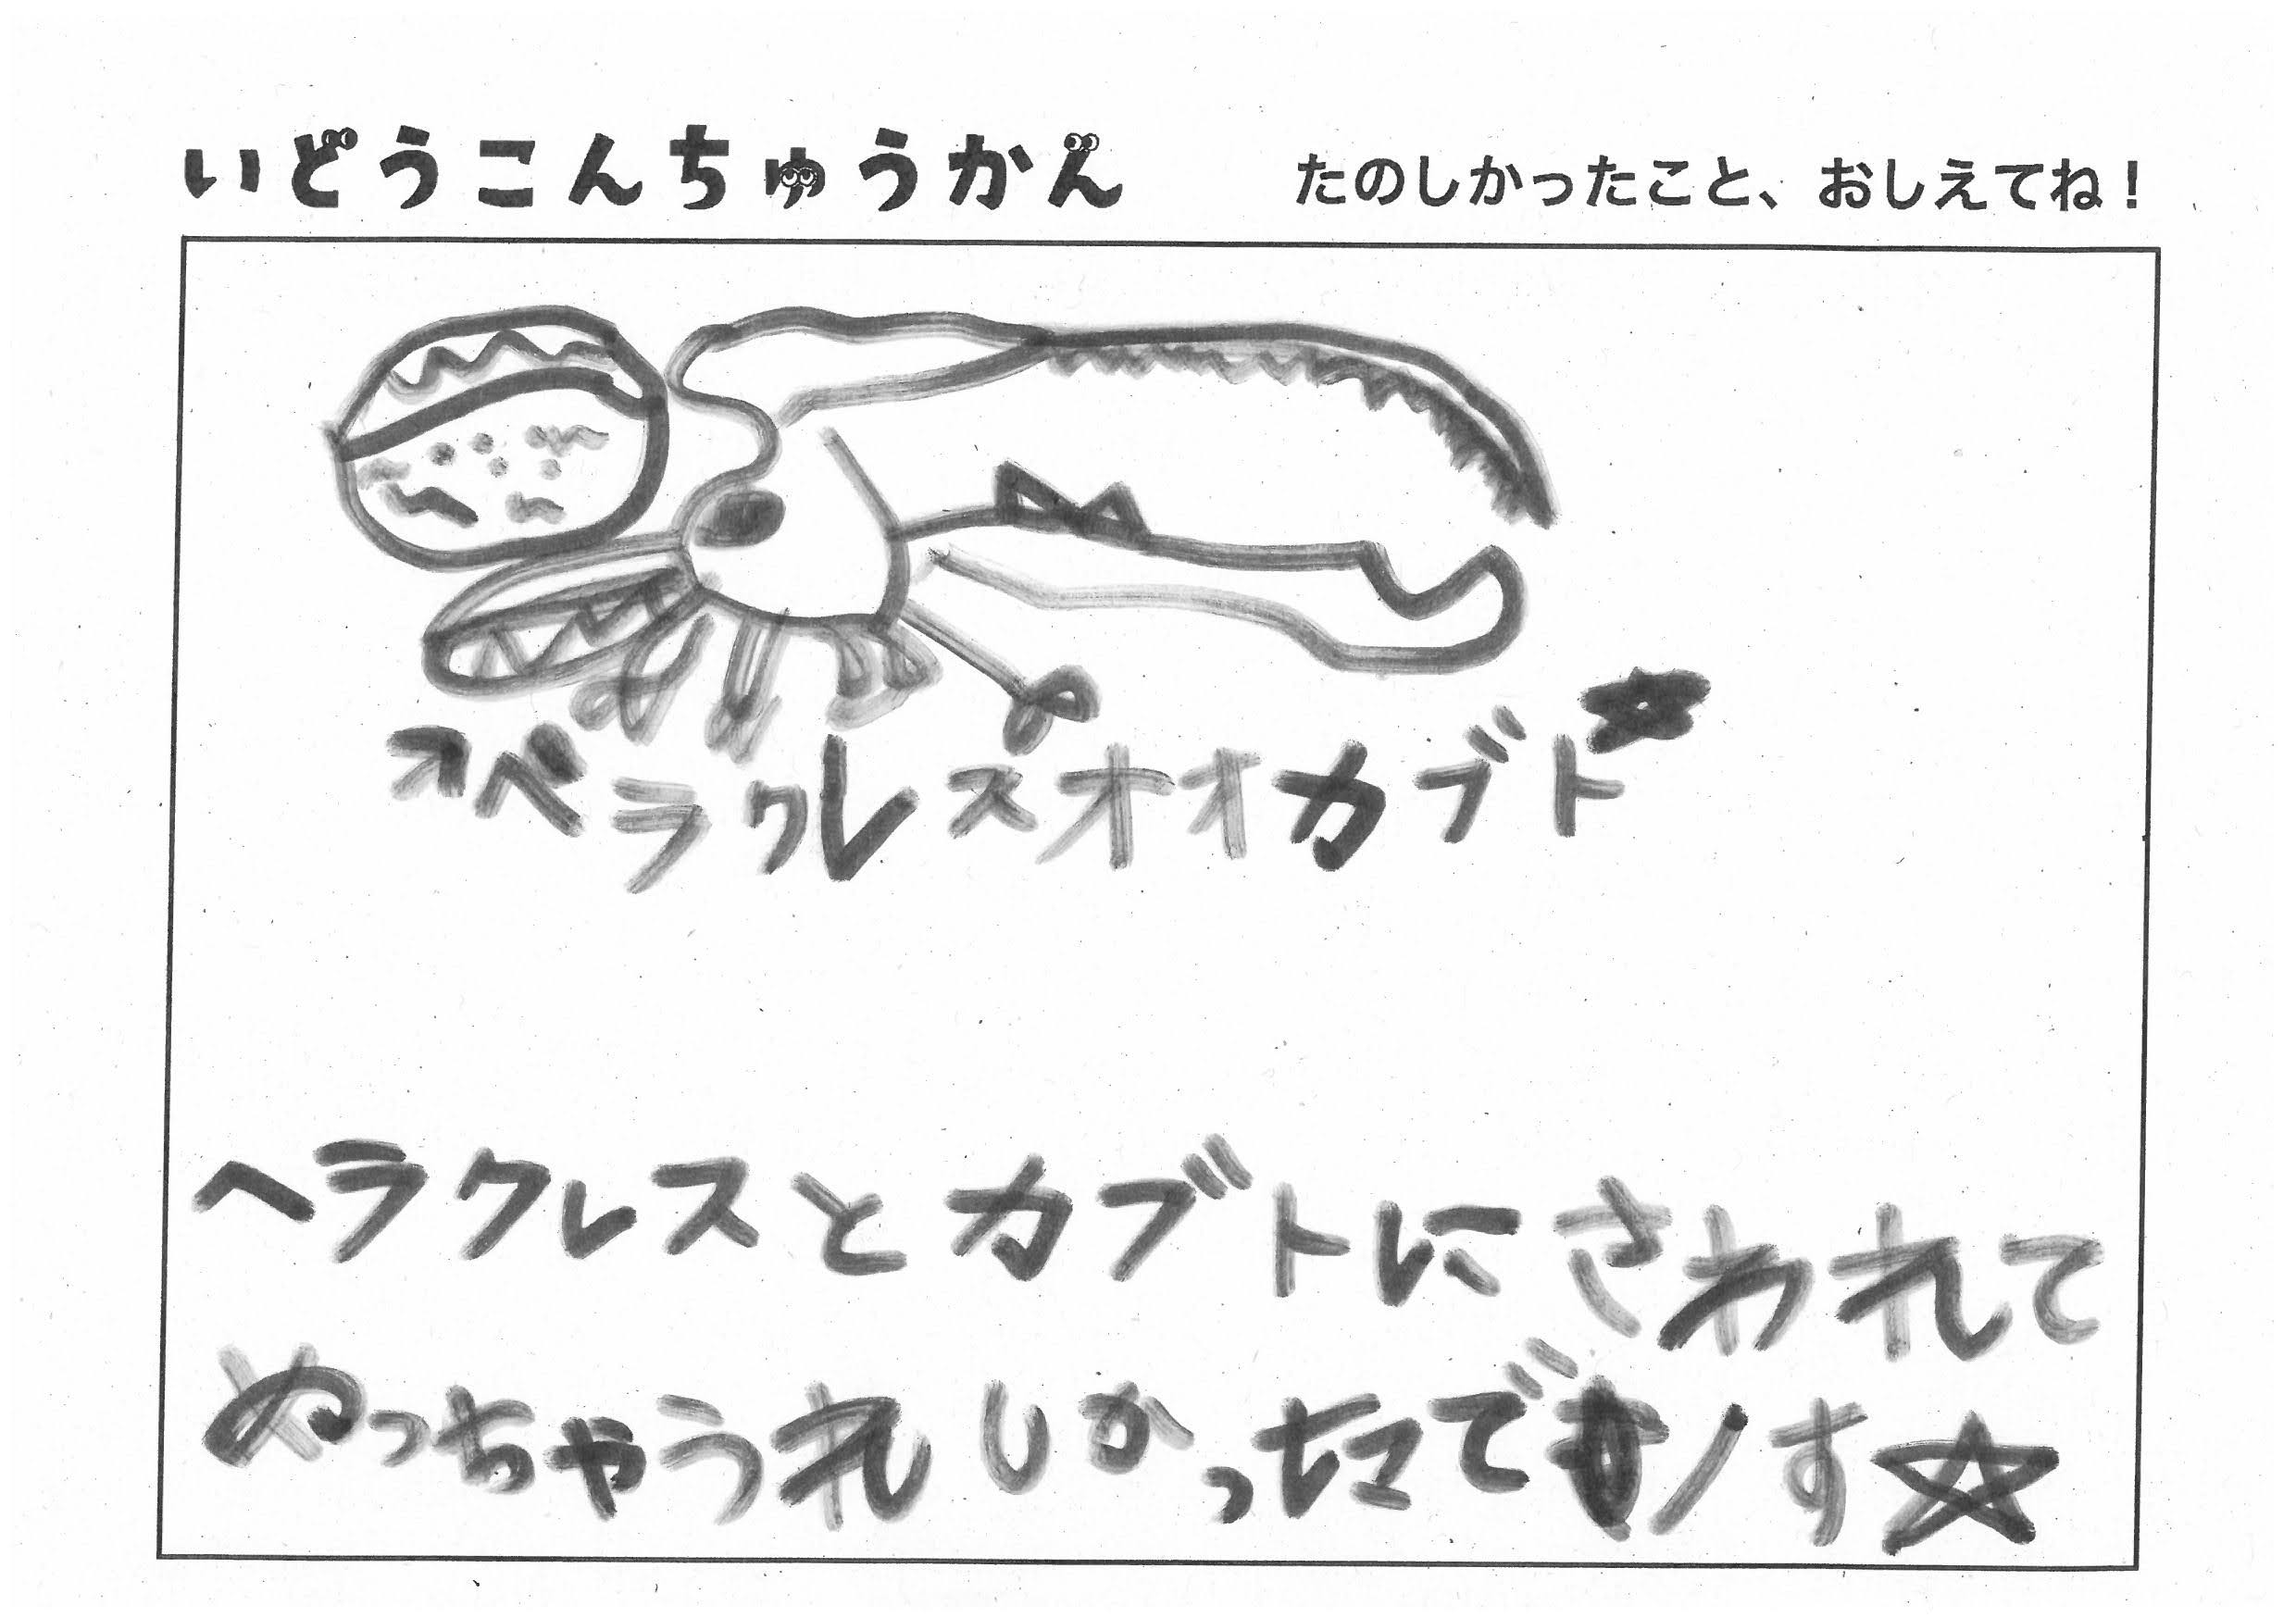 いどうこんちゅうかん
たのしかったこと、おしえてね！
オヘラクレスオオカブト
ヘラクレスとカブトにさわれて
めっちゃうれしかったです☆